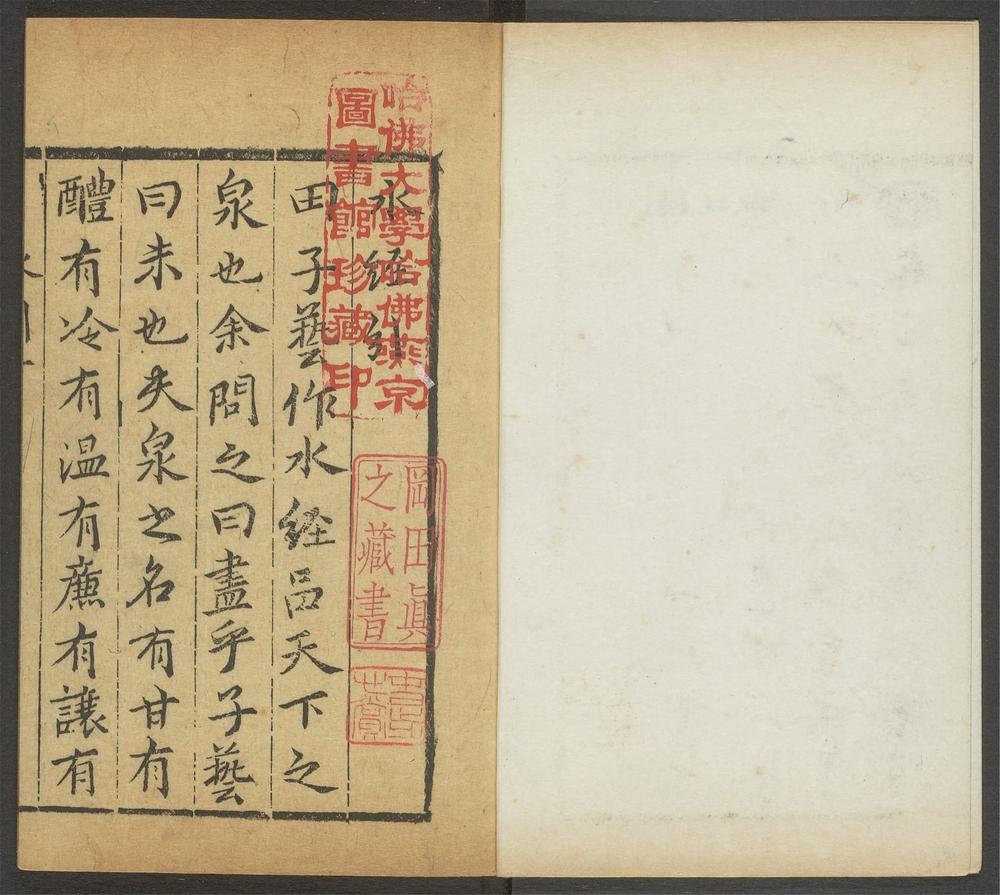 水經引
田子藝作水經品天下之
泉也余問之曰盡乎子藝
曰未也夫泉之名有甘有
醴有冷有温有廉有讓有
哈佛大學哈佛燕京
圖書館珍藏印
岡田眞
之藏書